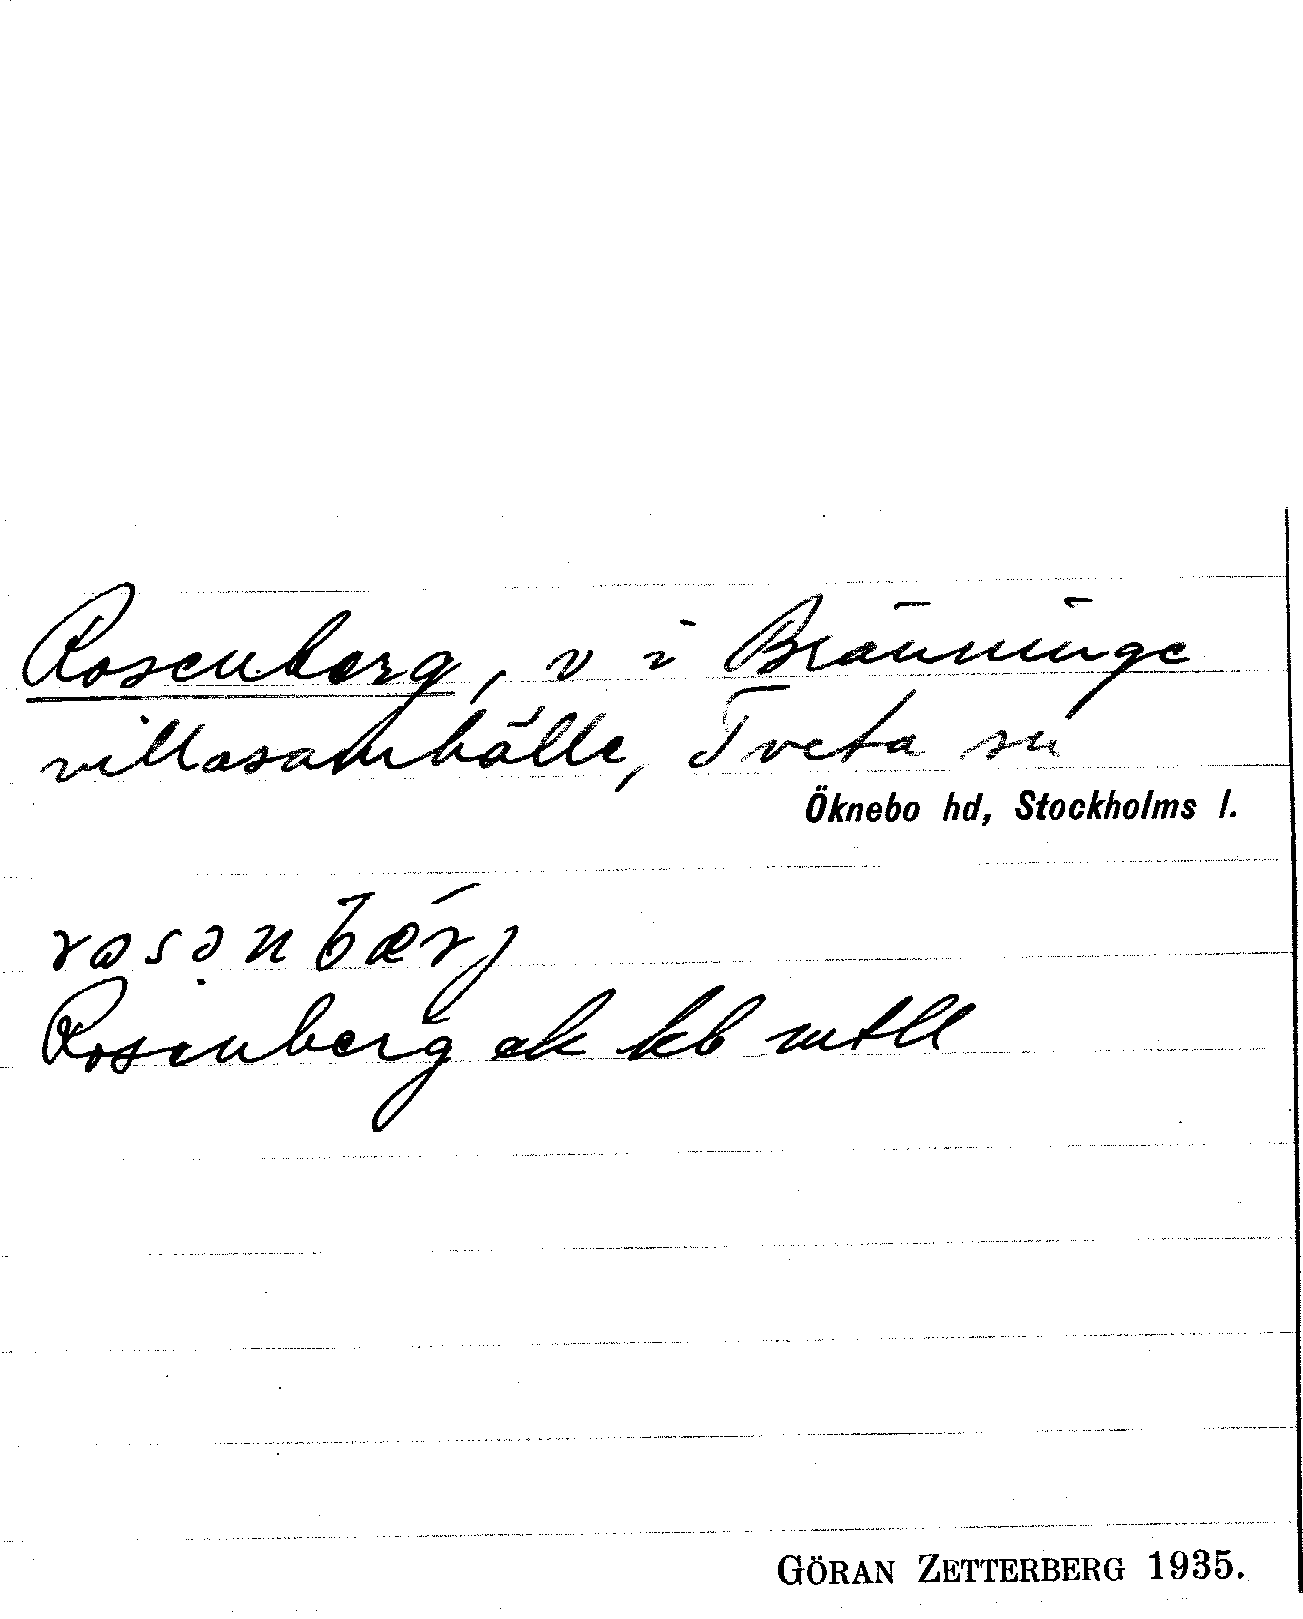 Rosenberg, v i Bränninge
villasamhälle, Tveta sn
Öknebo hd, Stockholms l.
rosənbærj
Rosenberg ek kb mtll
GÖRAN ZETTERBERG 1935.